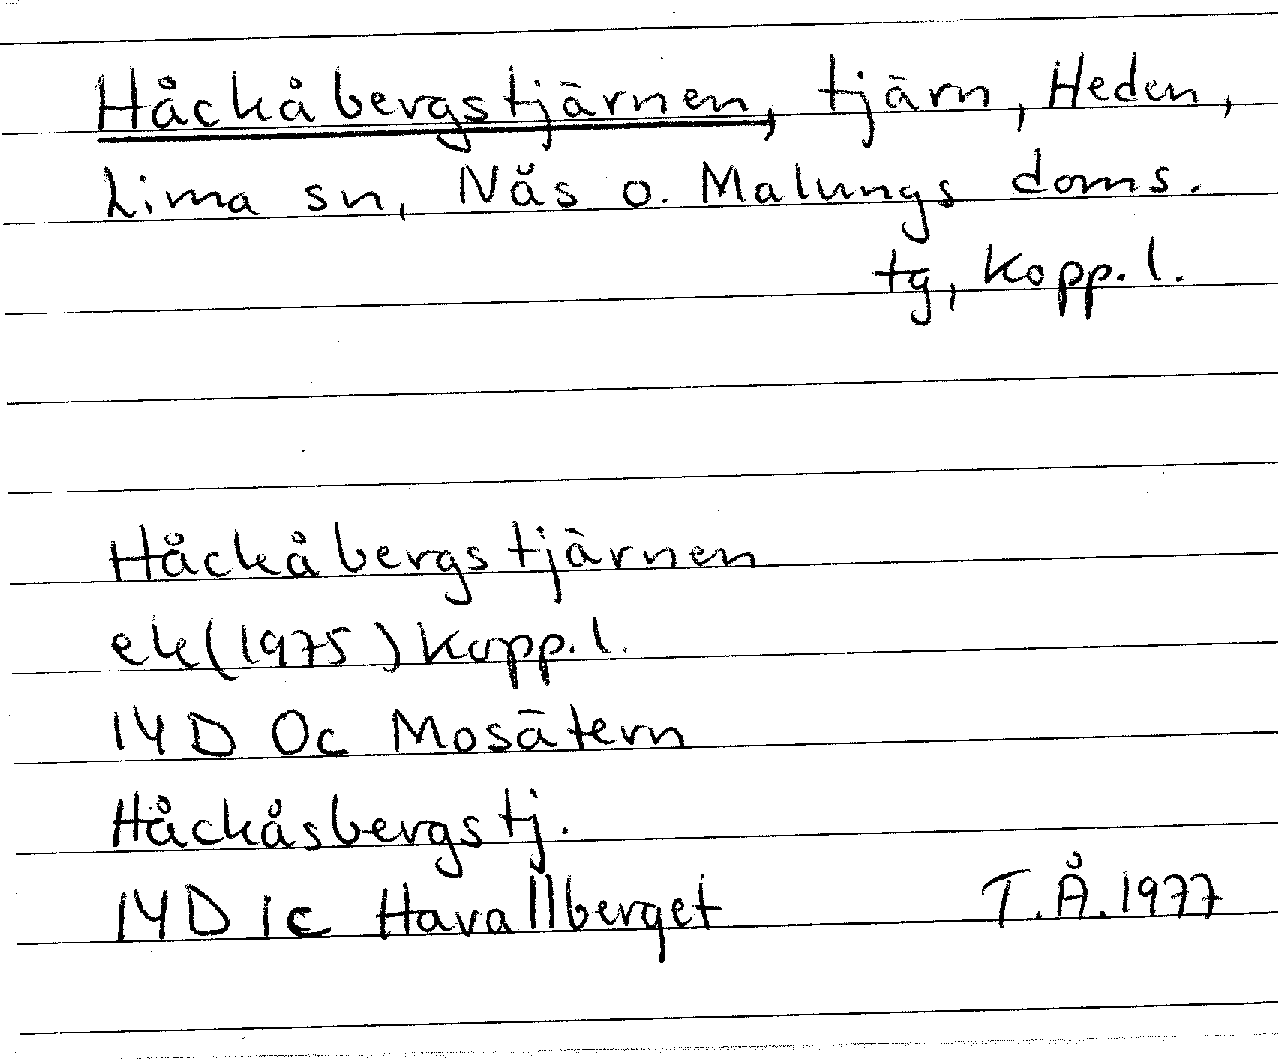 Håckåbergstjärnen, tjärn, Heden,
Lima sn, Näs o. Malungs doms.
tg, Kopp. l.
Håckåbergstjärnen
ek (1975) Kopp. l.
14 D 0c Mosätern
Håckåsbergstj.
14 D 1c Havallberget T.Å. 1977